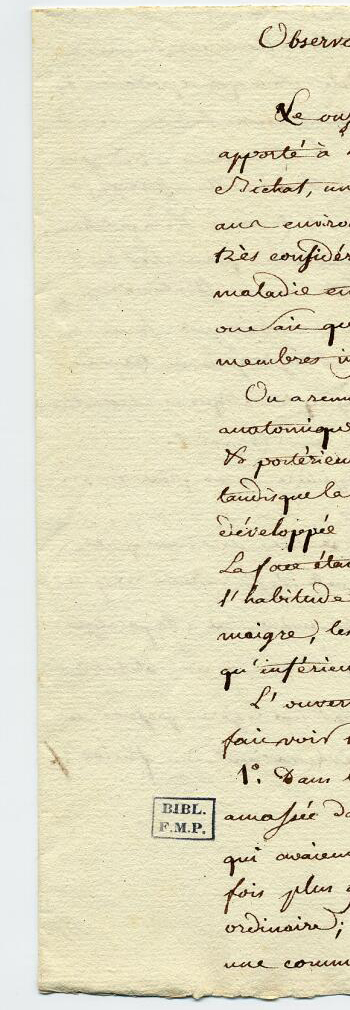 Observ
Le
apporté à
Bichat, un
aux enviro
très considér
maladie en
on sait qu
membres i
On a rem
anatomique
& postérieu
tandis que la
développée
La face étai
l'habitude
maigre, les
qu'inférieu
L'ouver
fait voir
1º. Dans
amassée da
qui avaien
fois plus
ordinaire;
une comm
BIBL.
F.M.P.